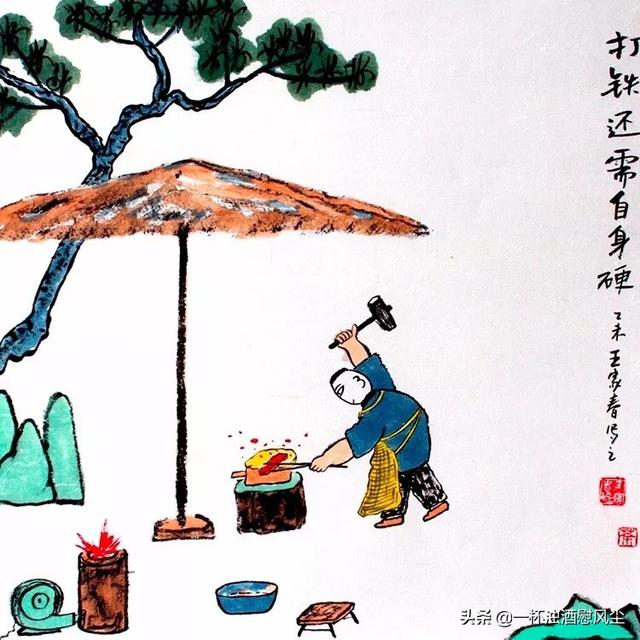 打铁还需自身硬
乙未王家春写之
头条 @一杯浊酒慰风尘